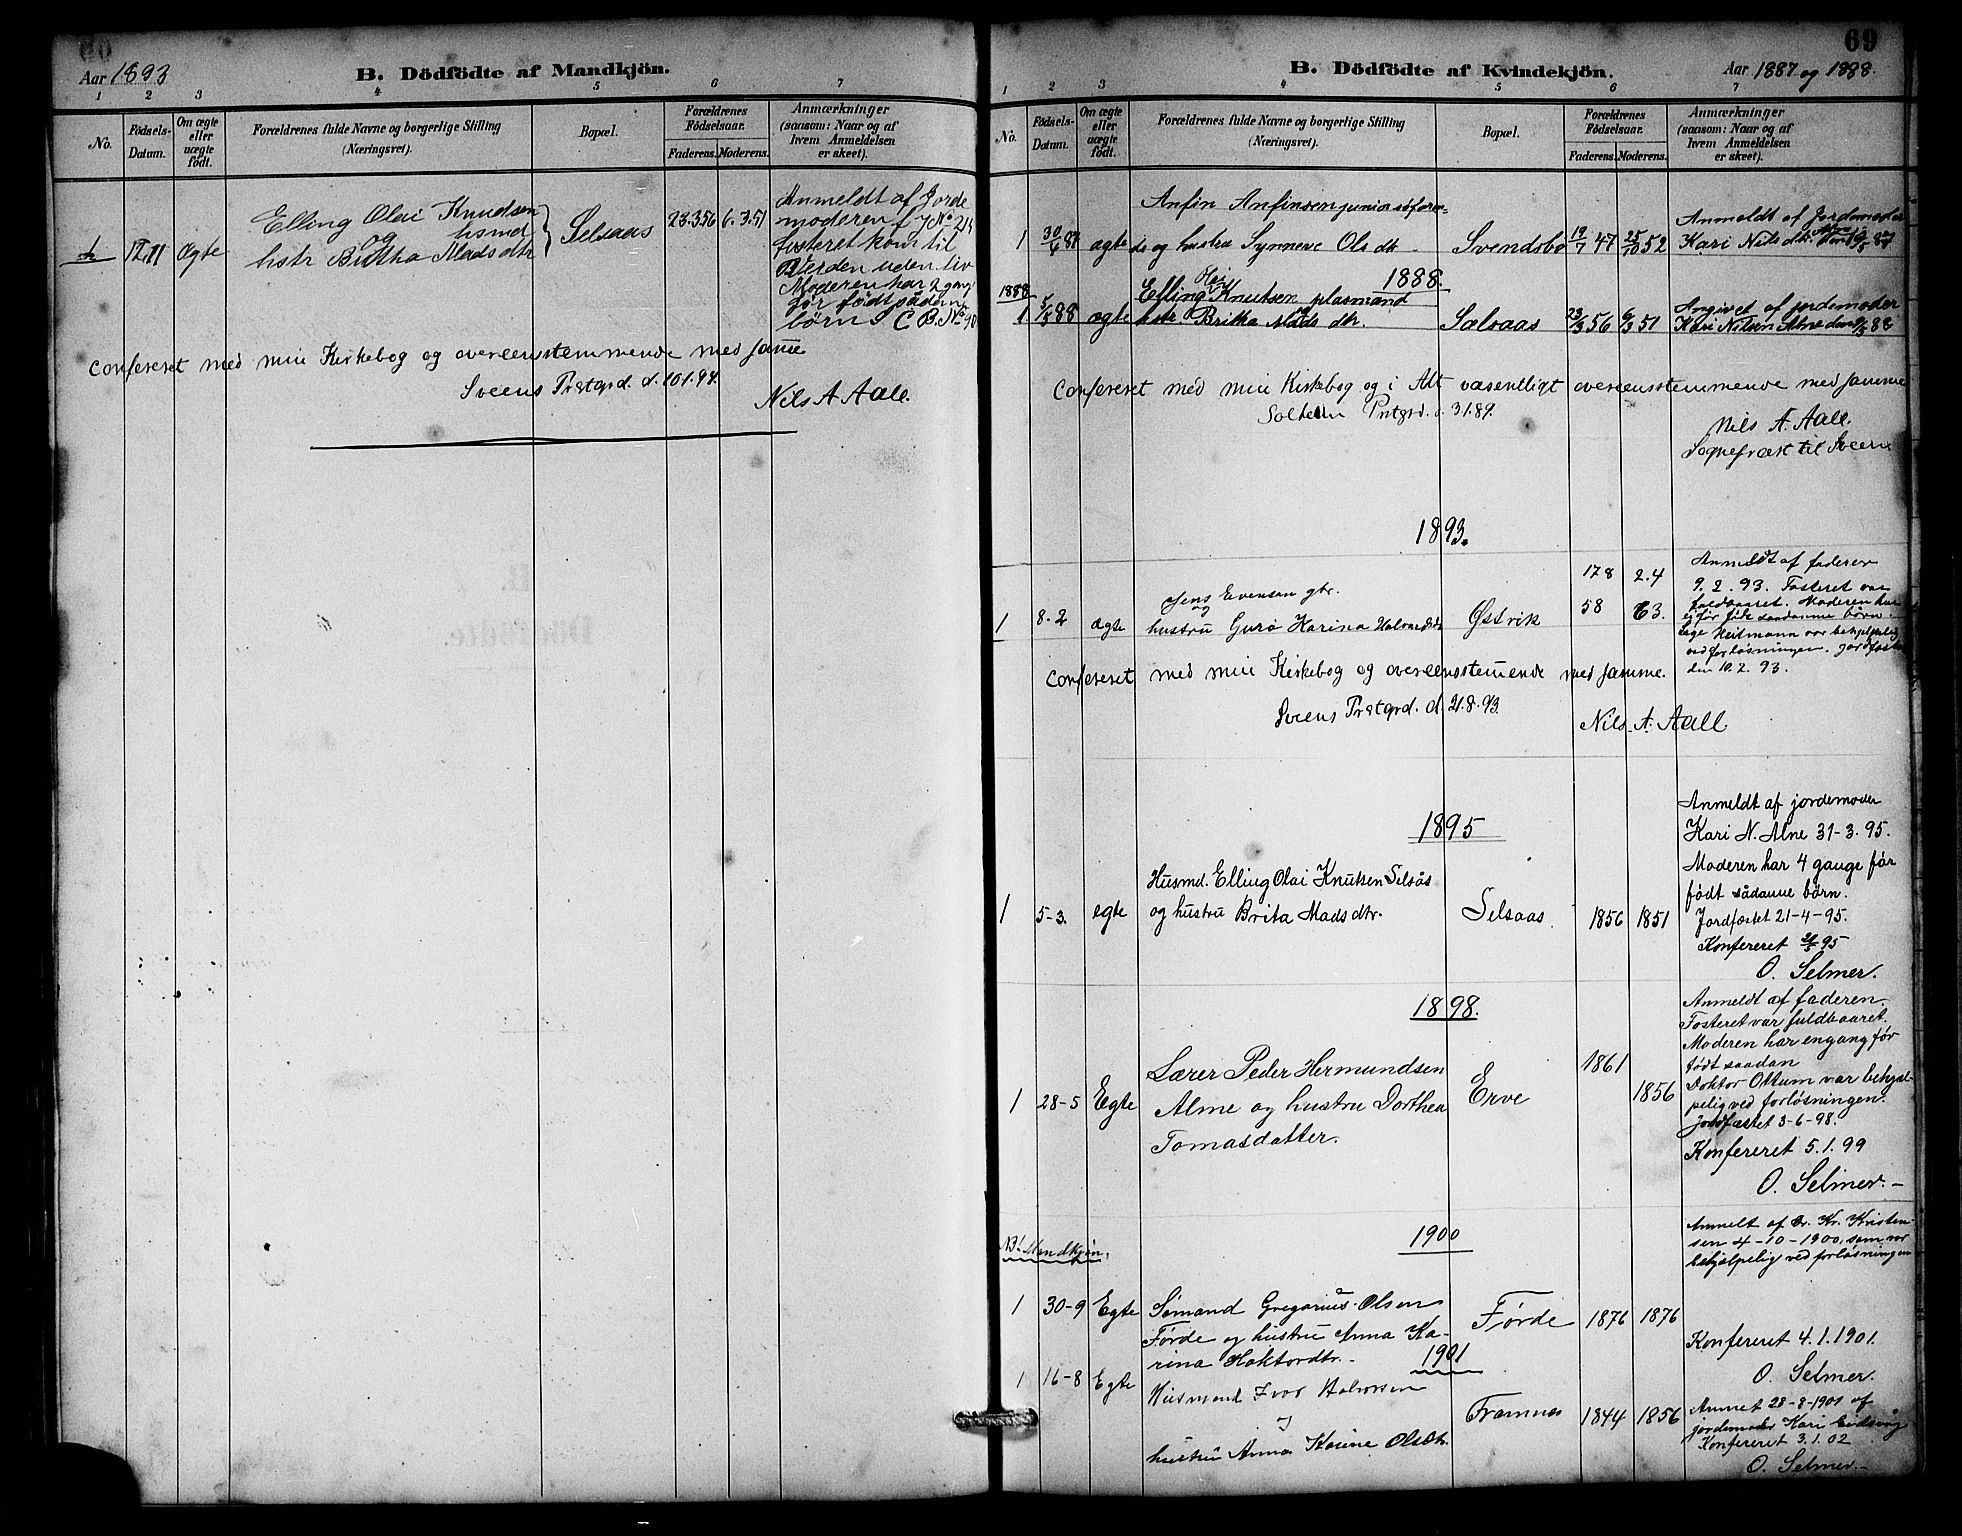 Aar 1893
B. Dödfödte af Mandkjön.
1 2 3 4 5 6 7
No.
Födsels-
Datum.
Om ægte
eller
uægte
födt.
Forældrenes fulde Navne og borgerlige Stilling
(Næringsvei).
Bopæl.
Forældrenes
Födselsaar.
Faderens. Moderens.
Anmærkninger
(saasom: Naar og af
hvem Anmeldelsen
er skeet).
Ægte
Elling Olai Knudsen
og husmd
hstr Britha Madsdtr
Selsaas
23.3.56
6.3.51
Anmeldt af Jorde
moderen
fosteret kom til
Verden uden liv
Moderen har 2 gang
før født sådanne
børn
Confereret med min Kirkebog og overeensstemmende med samme
Sveens Prstgrd. d. 10.1.94.
Nils A Aall.
69
B. Dödfödte af Kvindekjön.
Aar 1887 og 1888.
1 2 3 4 5 6 7
No.
Födsels-
Datum.
Om ægte
eller
uægte
födt.
Forældrenes fulde Navne og borgerlige Stilling
(Næringsvei).
Bopæl.
Forældrenes
Födselsaar.
Faderens. Moderens.
Anmærkninger
(saasom: Naar og af
hvem Anmeldelsen
er skeet).
Anfin Anfinsen junia søforen=
1 30/4 87 ægte de og hustru Synneve Ols dt Svendsbø 19/7 47 25/10 52
Anmeldt af Jordemoder
Kari Nils dtr.
1888 1888.
Elling Olai Knutsen plasmand
1. 5/5 88 ægte hstr. Britha Mads dtr. Selsaas 23/3 56 6/3 51
Angivet af jordemoder
Kari Nilsen Alne den
Confereret med min Kirkebog og i Alt væsentligt overeensstemmende med samme
Prstgrd. d. 3.1.89.
Nils A. Aall.
Sognepræst til Sveen
1893.
1 8-2 ægte
Jens Evensen gbr.
og
hustru Guro Karina Halvardsd
Østvik
17 8
58
2.4
63.
Anmeldt af faderen
9.2.93. Fosteret var
fuldbaaret. Moderen har
ej før føde saadanne børn
Læge Heitmann var behjelpelig
ved forløsningen. jordfæstet
den 10.2.93.
Confereret med min Kirkebog og overeensstemende med samme.
Sveens Prstgrd. d. 21.8.93.
Nils A. Aall
1895
1 5-3. egte
Husmd. Elling Olai Knutsen Selsås
og hustru Brita Mads dtr.
Selsaas 1856 1851
Anmeldt af jordemoder
Kari N. Alne 31-3.95.
Moderen har 4 gange før
født sådanne børn.
Jordfæstet 21-4-95.
Konfereret 95
O. Selmer.
1898.
1 28-5 Egte
Lærer Peder Hermundsen
Alme og hustru Dorthea
Tomasdatter.
Erve
1861
1856
Anmeldt af faderen.
Fosteret var fuldbaaret.
Moderen har engang før
født saadan
Doktor Ottum var behjæl-
pelig ved forløsningen.
Jordfæstet 3-6-98.
Konfereret 5.1.99
O. Selmer.-
1900
Mandkjøn.
1 30-9 Egte
Sømand Gregorius Olsen
Førde og hustru Anna Ka-
rina Haktordtr.-
Førde 1876 1876
Anmelt af Dr. Kr. Kristen-
sen 4-10-1900, som var
behjælpelig ved forløsningen
Konfereret 4.1.1901.
O. Selmer.
1901
1 16-8 Egte
Husmand Ivar Halvorsen
og
hustru Anna Karine Olsdt.
Framnes 1844 1856
Anmet 28-8-1901 af
jordemoder Kari Eidsvåg
Konfereret 3.1.02
O. Selmer.-